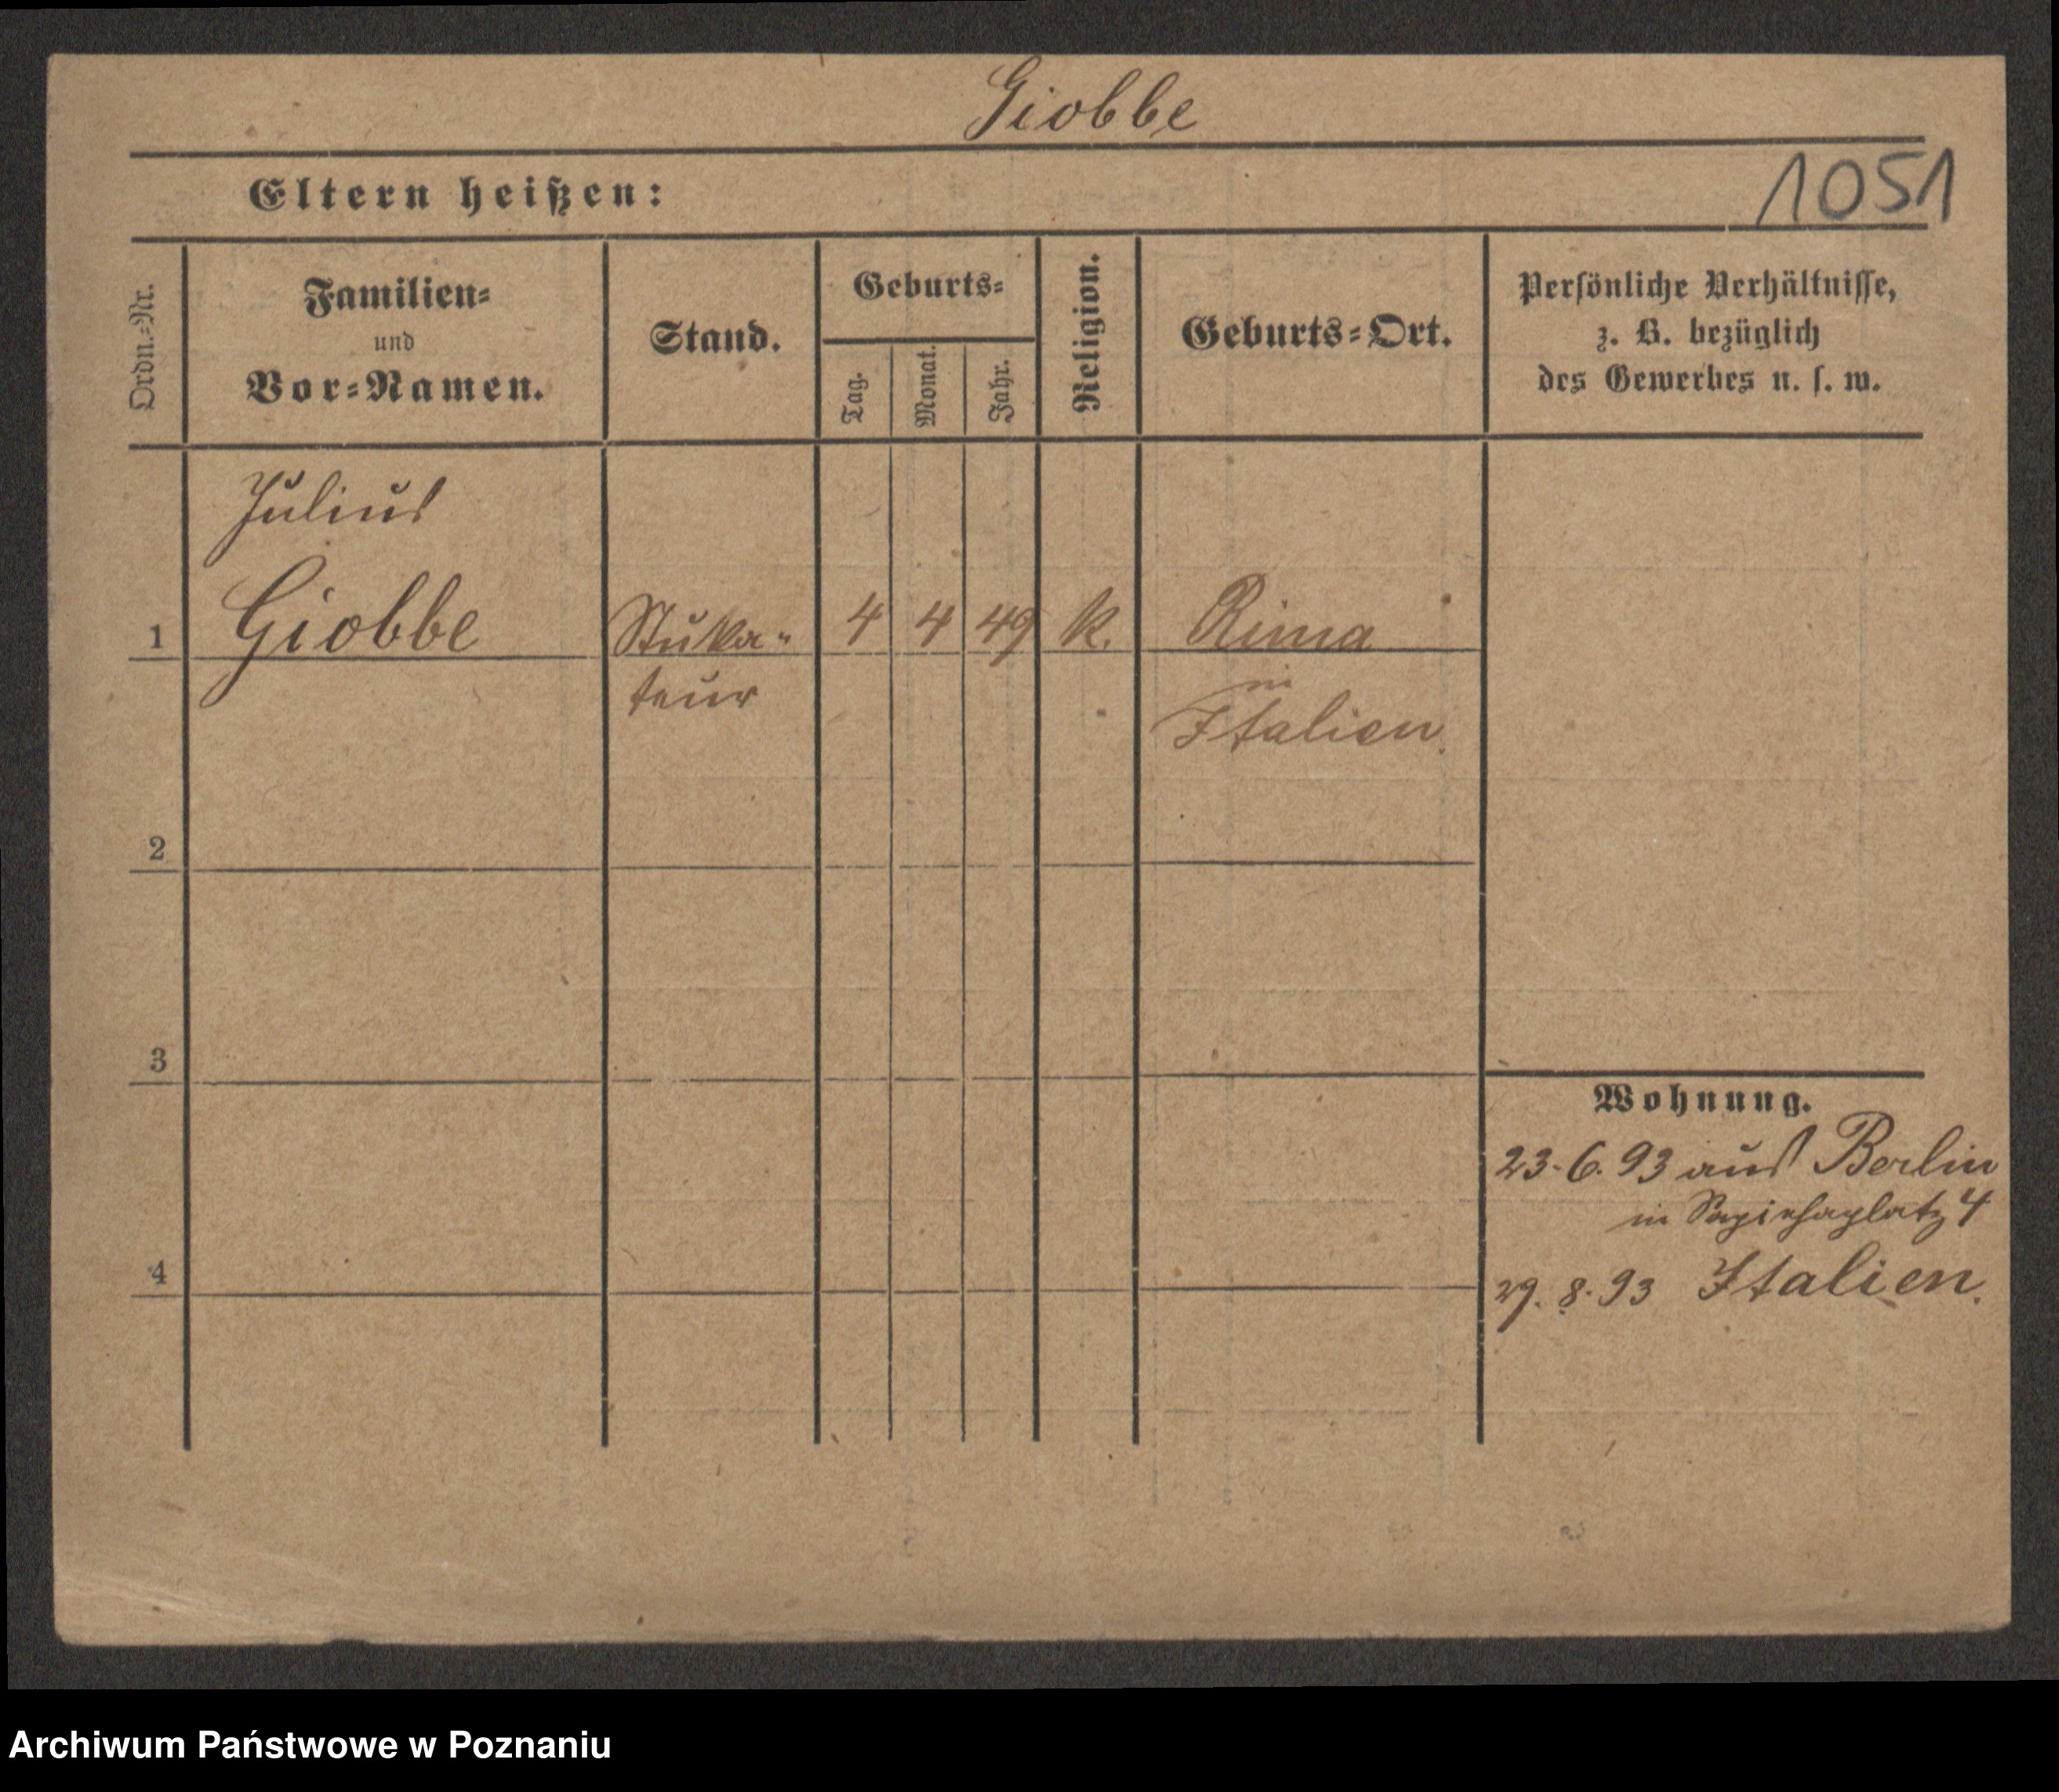 Giobbe
1051
Eltern heißen:
Ordn.-Nr.
Familien-
und
Vor-Namen.
Stand.
Geburts-
Tag.
Monat.
Jahr.
Religion.
Geburts-Ort.
Persönliche Verhältnisse,
z. B. bezüglich
des Gewerbes u. s. w.
Julius
1 Giobbe Stuka- 4 4 49 k. Rima
teur in
Italien.
2
3
Wohnung.
23.6.93 aus Berlin
in Sapiehaplatz 4
4
29.8.93 Italien.
Archiwum Państwowe w Poznaniu